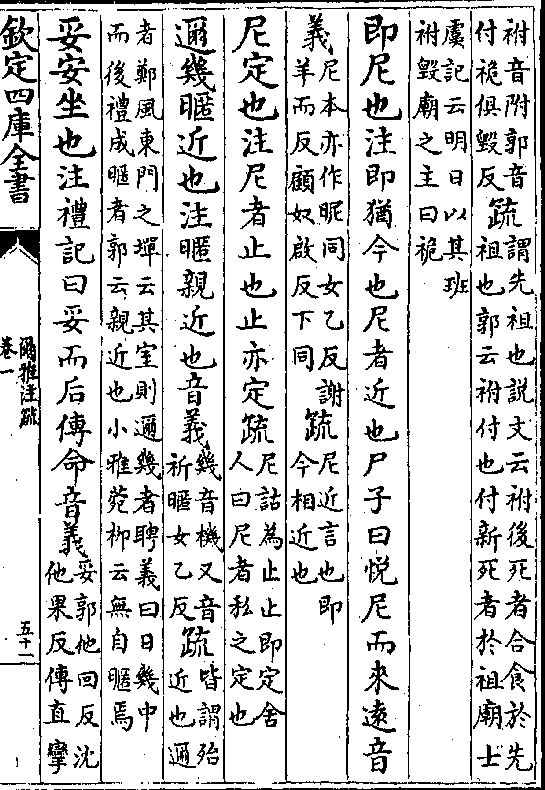 祔音附郭音
付祪俱毁反
疏
謂先祖也説文云祔後死者合食於先
祖也郭云祔付也付新死者於祖廟士
虞記云明日以其班
祔毁廟之主曰祪
即尼也注即猶今也尼者近也尸子曰悦尼而來逺音
義
尼本亦作昵同女乙反謝
羊而反顧奴啟反下同
疏
尼近言也即
今相近也
尼定也注尼者止也止亦定疏
尼詁為止止即定舍
人曰尼者私之定也
邇幾暱近也注暱親近也音義
幾音機又音
祈暱女乙反
疏
皆謂殆
近也邇
者鄭風東門之墠云其室則邇幾者聘義曰日幾中
而後禮成暱者郭云親近也小雅菀柳云無自暱焉
妥安坐也注禮記曰妥而后傳命音義
妥郭他回反沈
他果反傳直孿
欽定四庫全書
爾雅注疏
卷一
五十二